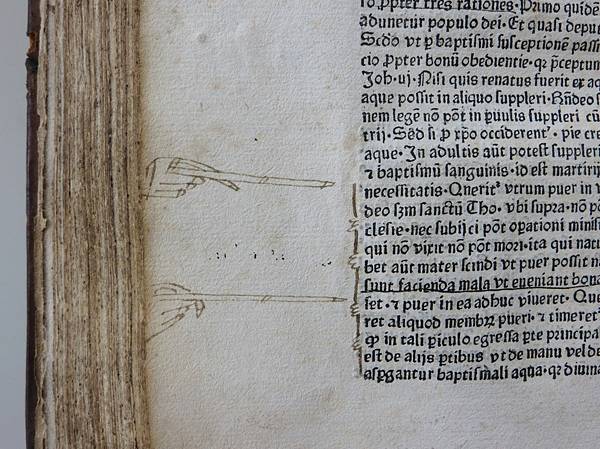 ꝓpter tres rationes. Primo quidē
adunetur populo dei. Et quasi depu
Scd̄o vt ꝑ baptismi susceptionē passi
cio ꝓpter bonū obedientie. qꝛ p̄ceptum
Joh. iij. Nisi quis renatus fuerit ex aq
aque possit in aliquo suppleri. Rñdeo s
nem legē nō pōt in ꝑuulis suppleri cū
trij. Sed si ꝓ xp̄o occiderent᷑. pie cre
aque. In adultis aūt potest suppleri
⁊ baptismū sanguinis. id est martirij
necessitatis. Querit᷑ vtrum puer in v
deo scḋm sanctū Tho. vbi supra. nō p
clesie. nec subijci pōt oꝑationi minis
qui nō vixit nō pōt mori. ita qui natu
bet aūt mater scindi vt puer possit n
sunt facienda mala vt eueniant bona
set. ⁊ puer in ea adhuc viueret. Que
ret aliquod membꝝ pueri. ⁊ timeret
ꝙ in tali ꝑiculo egressa ꝑte principa
est de alijs ꝑtibus vt de manu vel de
aspgantur baptismali aqua. qꝛ diuina